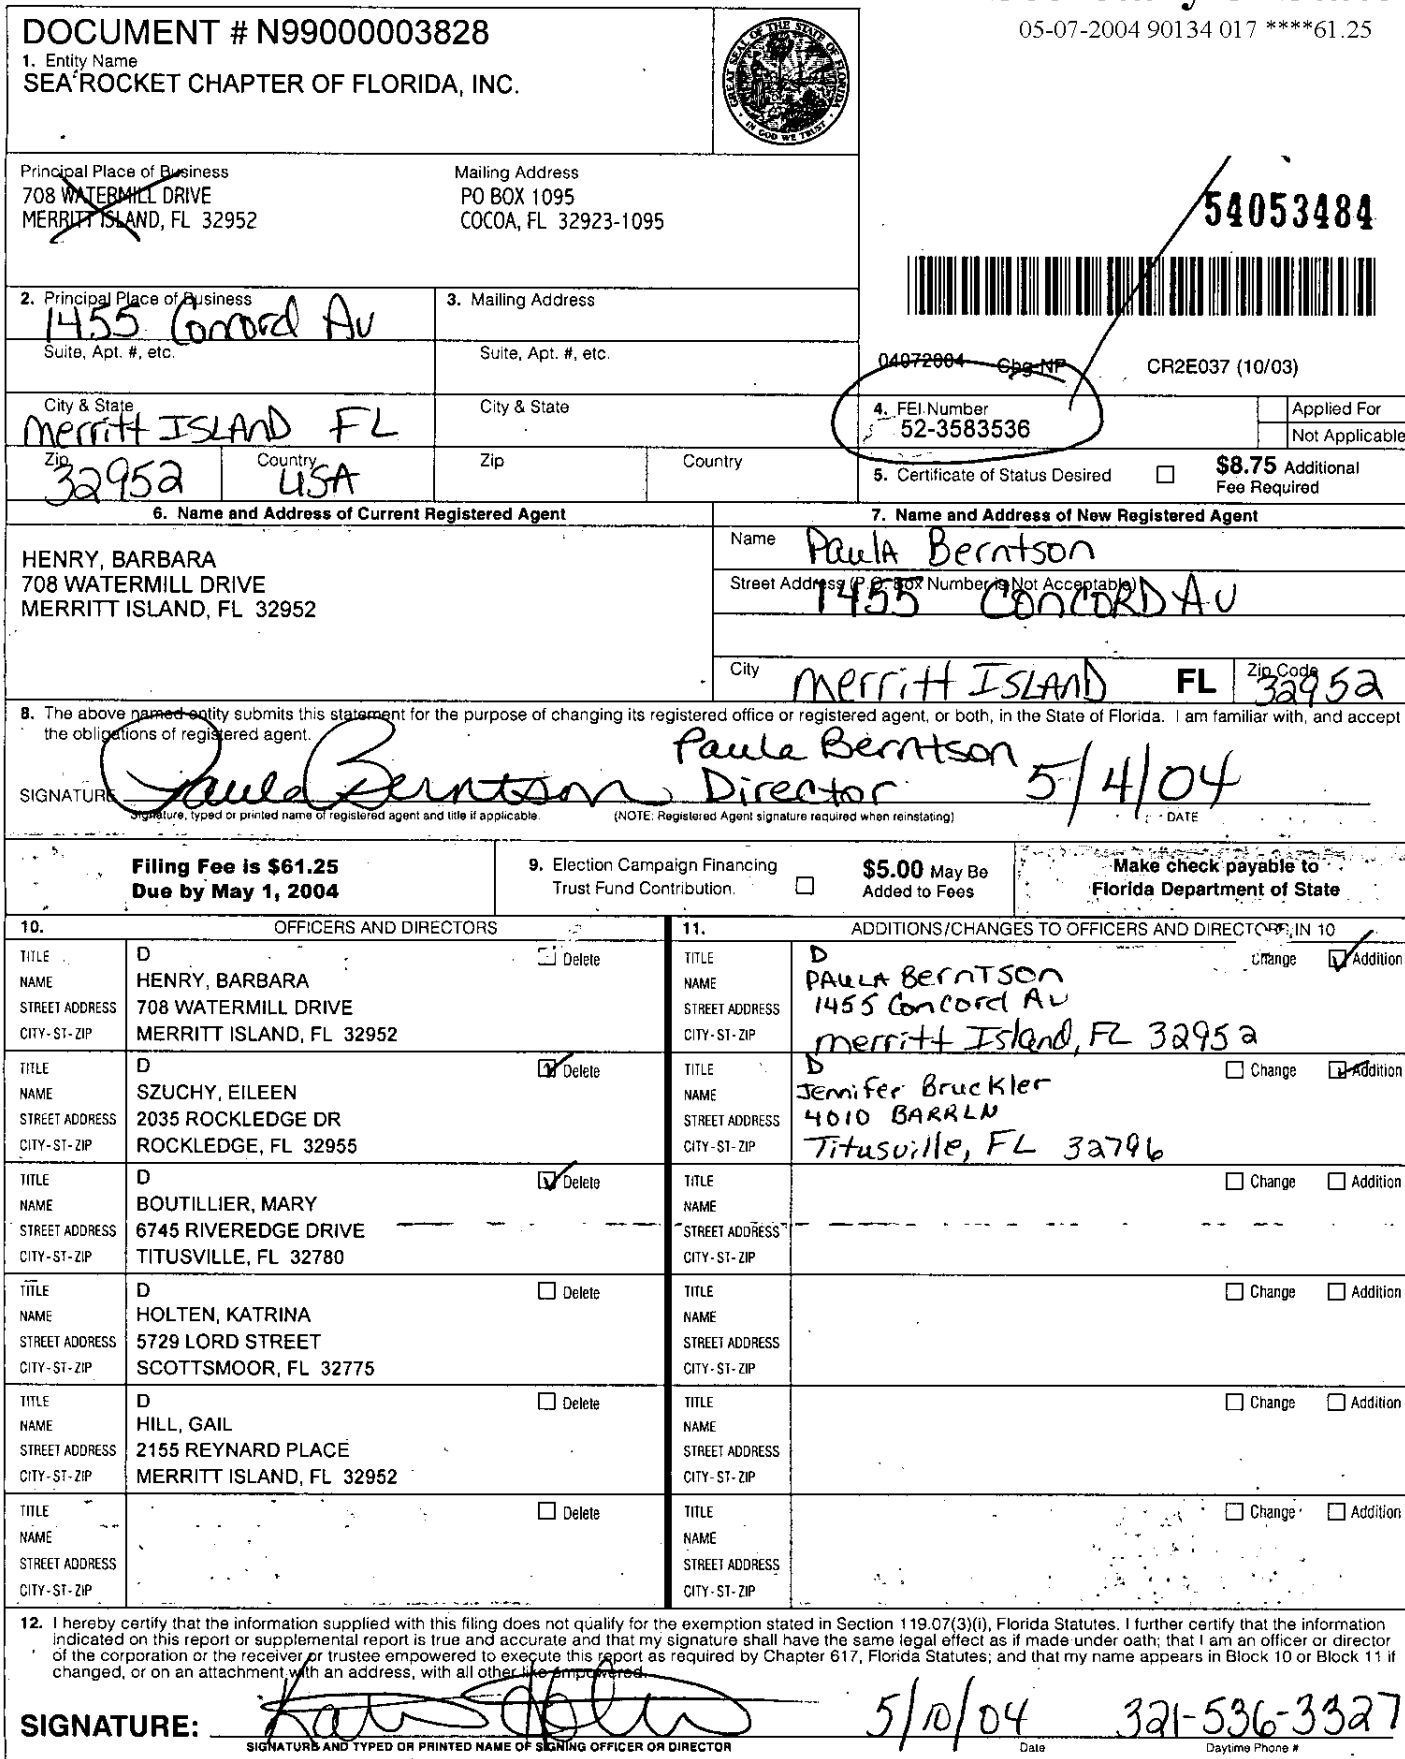 05-07-2004 90134 017 ****61.25
DOCUMENT # N99000003828
1. Entity Name
SEA ROCKET CHAPTER OF FLORIDA, INC.
GREAT SEAL OF THE STATE OF FLORIDA
IN GOD WE TRUST
Principal Place of Business
708 WATERMILL DRIVE
MERRITT ISLAND, FL 32952
Mailing Address
PO BOX 1095
COCOA, FL 32923-1095
54053484
2. Principal Place of Business
1455 Concord Av
3. Mailing Address
Suite, Apt. #, etc.
Suite, Apt. #, etc.
04072004 Chg-NP CR2E037 (10/03)
City & State
Merritt ISLAND FL
City & State
4. FEI Number
52-3583536
Applied For
Not Applicable
Zip
32952
Country
USA
Zip
Country
5. Certificate of Status Desired
$8.75 Additional
Fee Required
6. Name and Address of Current Registered Agent
HENRY, BARBARA
708 WATERMILL DRIVE
MERRITT ISLAND, FL 32952
7. Name and Address of New Registered Agent
Name
Paula Berntson
Street Address (P.O. Box Number is Not Acceptable)
1455 CONCORD AV
City
Merritt ISLAND
FL
Zip Code
32952
8. The above named entity submits this statement for the purpose of changing its registered office or registered agent, or both, in the State of Florida. I am familiar with, and accept
the obligations of registered agent.
Paula Berntson
SIGNATURE Paula Berntson Director 5/4/04
Signature, typed or printed name of registered agent and title if applicable. (NOTE: Registered Agent signature required when reinstating) DATE
Filing Fee is $61.25
Due by May 1, 2004
9. Election Campaign Financing
Trust Fund Contribution.
$5.00 May Be
Added to Fees
Make check payable to
Florida Department of State
10. OFFICERS AND DIRECTORS
TITLE D Delete
NAME HENRY, BARBARA
STREET ADDRESS 708 WATERMILL DRIVE
CITY-ST-ZIP MERRITT ISLAND, FL 32952
TITLE D Delete
NAME SZUCHY, EILEEN
STREET ADDRESS 2035 ROCKLEDGE DR
CITY-ST-ZIP ROCKLEDGE, FL 32955
TITLE D Delete
NAME BOUTILLIER, MARY
STREET ADDRESS 6745 RIVEREDGE DRIVE
CITY-ST-ZIP TITUSVILLE, FL 32780
TITLE D Delete
NAME HOLTEN, KATRINA
STREET ADDRESS 5729 LORD STREET
CITY-ST-ZIP SCOTTSMOOR, FL 32775
TITLE D Delete
NAME HILL, GAIL
STREET ADDRESS 2155 REYNARD PLACE
CITY-ST-ZIP MERRITT ISLAND, FL 32952
TITLE Delete
NAME
STREET ADDRESS
CITY-ST-ZIP
11. ADDITIONS/CHANGES TO OFFICERS AND DIRECTORS IN 10
TITLE D Change Addition
NAME PAULA Berntson
STREET ADDRESS 1455 Concord Av
CITY-ST-ZIP Merritt Island, FL 32952
TITLE D Change Addition
NAME Jennifer Bruckler
STREET ADDRESS 4010 BARRLN
CITY-ST-ZIP Titusville, FL 32796
TITLE Change Addition
NAME
STREET ADDRESS
CITY-ST-ZIP
TITLE Change Addition
NAME
STREET ADDRESS
CITY-ST-ZIP
TITLE Change Addition
NAME
STREET ADDRESS
CITY-ST-ZIP
TITLE Change Addition
NAME
STREET ADDRESS
CITY-ST-ZIP
12. I hereby certify that the information supplied with this filing does not qualify for the exemption stated in Section 119.07(3)(i), Florida Statutes. I further certify that the information
indicated on this report or supplemental report is true and accurate and that my signature shall have the same legal effect as if made under oath; that I am an officer or director
of the corporation or the receiver or trustee empowered to execute this report as required by Chapter 617, Florida Statutes; and that my name appears in Block 10 or Block 11 if
changed, or on an attachment with an address, with all other like empowered.
SIGNATURE: 5/10/04 321-536-3327
SIGNATURE AND TYPED OR PRINTED NAME OF SIGNING OFFICER OR DIRECTOR Date Daytime Phone #